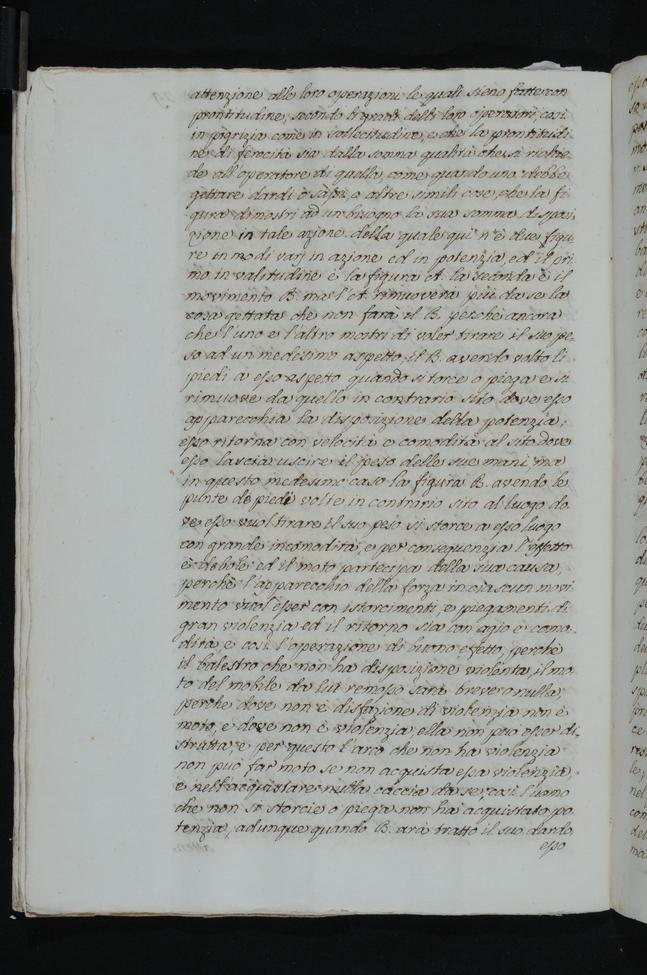 attenzione alle loro operazioni le quali sieno fatte con
prontitudine, secondo li gradi delle loro operazioni così
in pigrizia come in sollecitudine, e che la prontitudi
ne di ferocità sia dalla somma qualità che si richie
de all'operatore di quella, come quando uno debbe
gettare dardi o sassi, o altre simili cose, che la fi
gura dimostri ad un bisogno la sua somma disposi
zione in tale azione della quale qui n'è due figu
re in modi varj in azione ed in potenzia, ed il pri
mo in valitudine è la figura A. la seconda è il
movimento B. ma l'A. rimuoverà più da se la
cosa gettata che non farà il B. perché ancora
che l'uno e l'altro mostri di voler tirare il suo pe
so ad un medesimo aspetto, il B. avendo volto li
piedi a esso aspetto quando si torce o piega e si
rimuove da quello in contrario sito dove esso
apparecchia la disposizione della potenzia,
esso ritorna con velocità e comodità al sito dove
esso lascia uscire il peso delle sue mani, ma
in questo medesimo caso la figura B. avendo le
punte de piedi volte in contrario sito al luogo do
ve esso vuol tirare il suo peso si storce a esso luogo
con grande incomodità, e per conseguenzia l'effetto
è debole, ed il moto partecipa della sua causa,
perchè l'apparecchio della forza in ciascun movi
mento vuol esser con istorcimenti, e piegamenti di
gran violenzia ed il ritorno sia con agio e como
dità, e così l'operazione di buono effetto, perchè
il balestro che non ha disposizione violenta, il mo
to del mobile da lui remosso sarà breve o nulla,
perchè dove non è disfazione di violenzia non è
moto, e dove non è violenzia, ella non può esser di
strutta, e per questo l'arco che non ha violenzia
non può far moto se non acquista essa violenzia,
e nell'acquistare nulla caccia da se, così l'uomo
che non si storcie o piega non ha acquistato po
tenzia, adunque quando B. arà tratto il suo dardo
esso